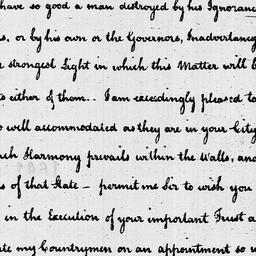 have so good a man destroyed by his Ignorance
s, or by his own or the Governors, Inadvertancy
strongest Light in which this Matter will b
s either of them.. I am exceedingly pleased to
well accommodated as they are in your City
uch Harmony prevails within the Walls, and
s of that State – permit me Sir to wish you
in the Execution of your important Trust a
ate my Countrymen on an appointment so w